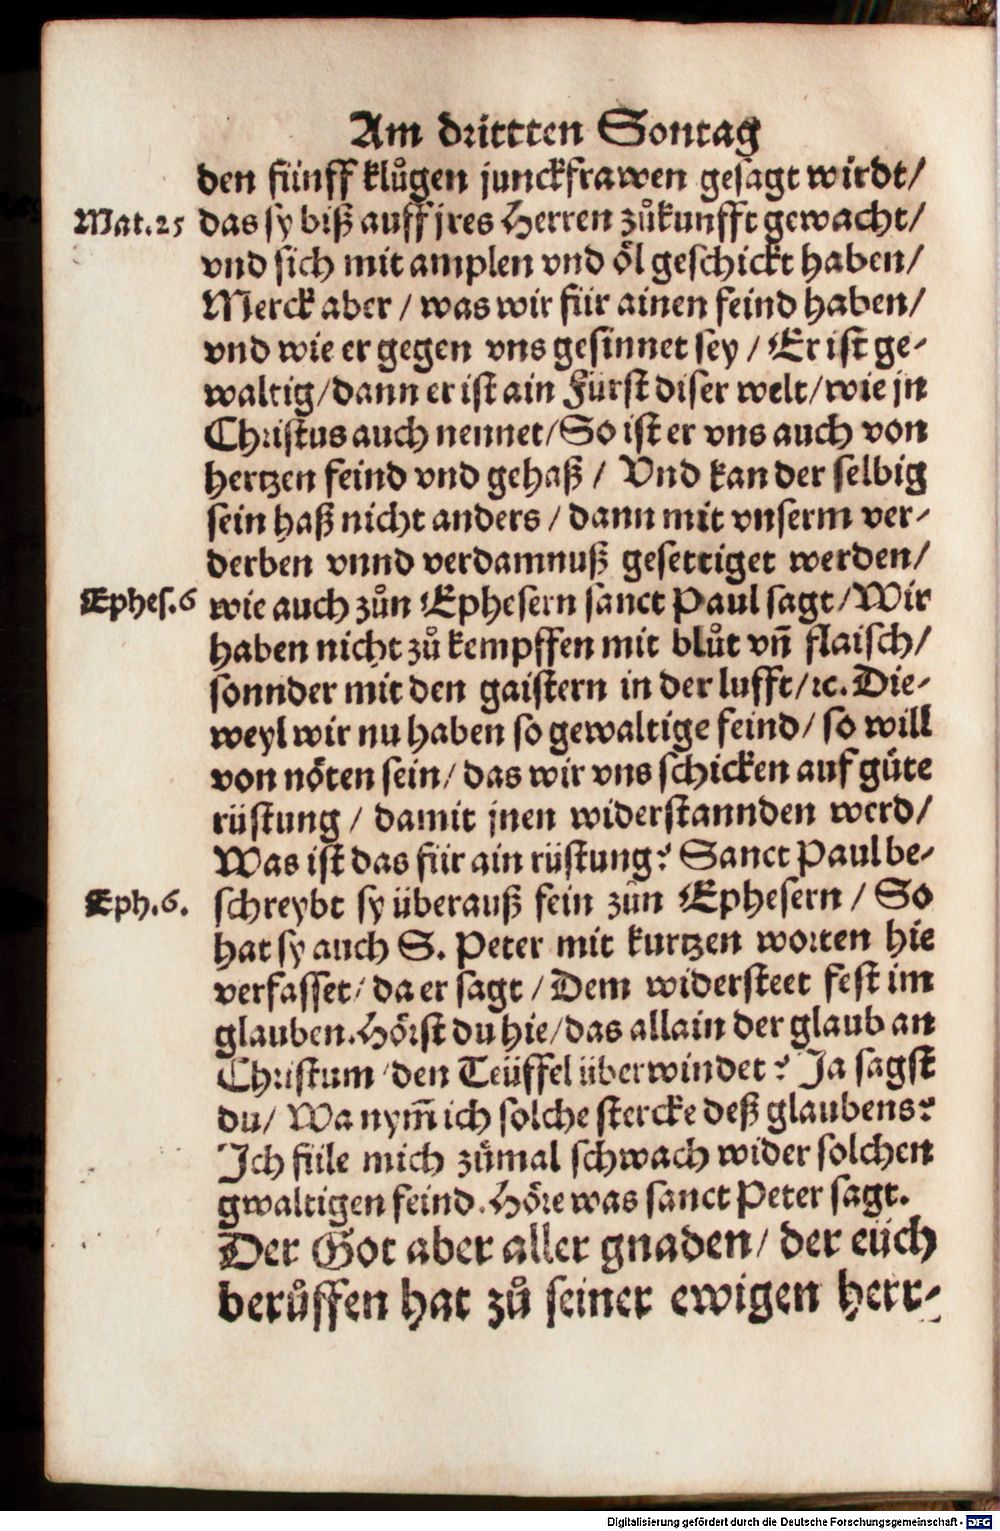 Am drittten Sontag
den fünff klůgen junckfrawen gesagt wirdt/
Mat.25 das sy biß auff jres Herren zůkunfft gewacht/
vnd sich mit amplen vnd öl geschickt haben/
Merck aber / was wir für ainen feind haben/
vnd wie er gegen vns gesinnet sey / Er ist ge-
waltig/dann er ist ain Fürst diser welt/wie jn
Christus auch nennet/So ist er vns auch von
hertzen feind vnd gehaß / Vnd kan der selbig
sein haß nicht anders / dann mit vnserm ver-
derben vnnd verdamnuß gesettiget werden/
Ephes.6 wie auch zůn Ephesern sanct Paul sagt/Wir
haben nicht zů kempffen mit blůt vñ flaisch/
sonnder mit den gaistern in der lufft/ꝛc. Die-
weyl wir nu haben so gewaltige feind/ so will
von nöten sein/ das wir vns schicken auf gůte
rüstung / damit jnen widerstannden werd/
Was ist das für ain rüstung? Sanct Paul be-
Eph.6. schreybt sy überauß fein zůn Ephesern / So
hat sy auch S. Peter mit kurtzen worten hie
verfasset/ da er sagt / Dem widersteet fest im
glauben. Hörst du hie/das allain der glaub an
Christum /den Teüffel überwindet? Ja sagst
du/ Wa nym̃ ich solche stercke deß glaubens?
Ich füle mich zůmal schwach wider solchen
gwaltigen feind. Höre was sanct Peter sagt.
Der Got aber aller gnaden/ der eüch
berůffen hat zů seiner ewigen herr-
Digitalisierung gefördert durch die Deutsche Forschungsgemeinschaft - DFG